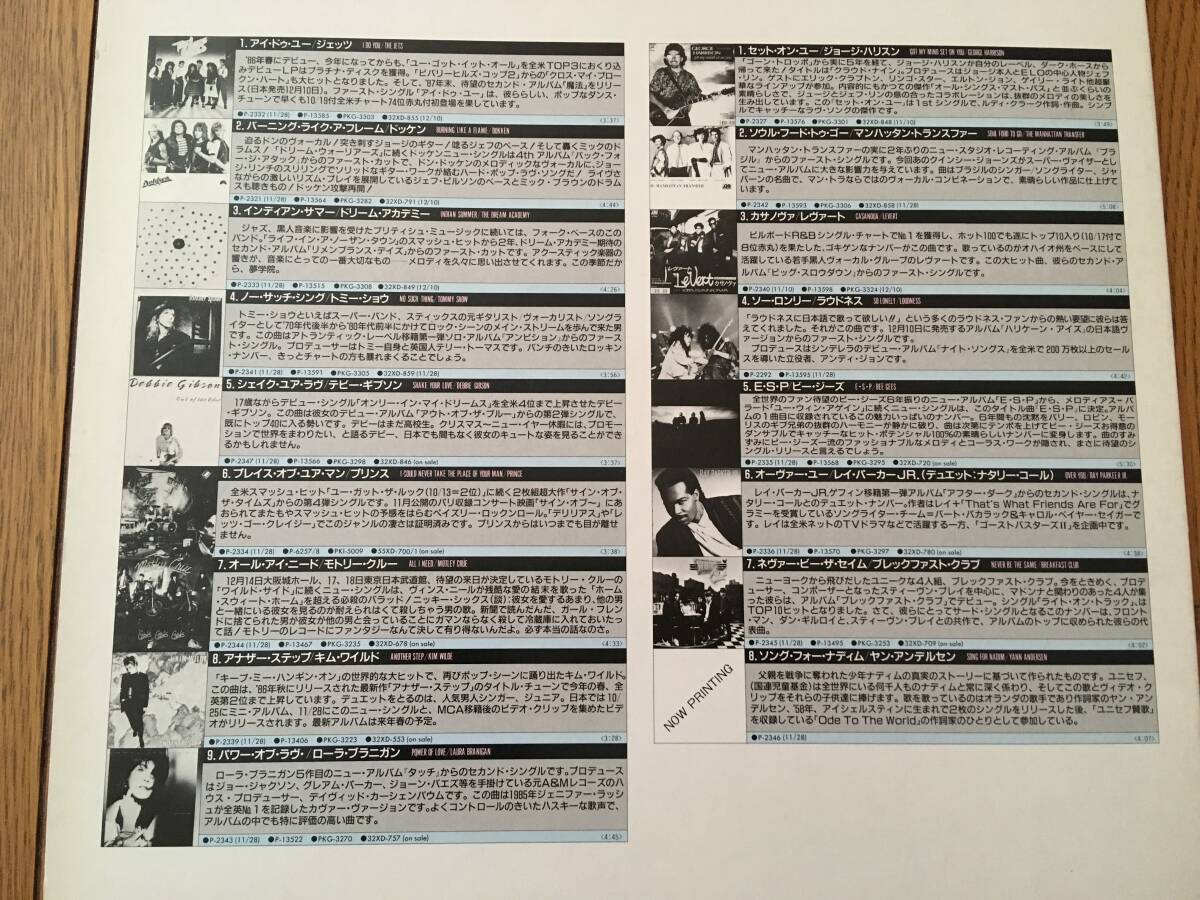 1. アイ・ドゥ・ユー/ジェッツ I DO YOU/THE JETS
'86年春にデビュー、今年になってからも、「ユー・ゴット・イット・オール」を全米TOP3におくり込
みデビューLPはプラチナ・ディスクを獲得。「ビバリーヒルズ・コップ2」からの「クロス・マイ・ブロー
クン・ハート」も大ヒットとなりました。そして、'87年末、待望のセカンド・アルバム「魔法」をリリー
ス(日本発売12月10日)。ファースト・シングル「アイ・ドゥ・ユー」は、彼ららしい、ポップなダンス・
チューンで早くも10/19付全米チャート74位赤丸付初登場を果しています。
●P-2332(11/28) ●P-13585 ●PKG-3503 ●32XD-855(12/10) 〈3:37〉
2. バーニング・ライク・ア・フレーム/ドッケン BURNING LIKE A FLAME/DOKKEN
迫るドンのヴォーカル/突き刺すジョージのギター/唸るジェフのベース/そして轟くミックのド
ラムス/「ドリーム・ウォーリアーズ」に続くドッケンニュー・シングルは4th アルバム「バック・フォ
ー・ジ・アタック」からのファースト・カットで、ドン・ドッケンのメロディックなヴォーカルに、ジョー
ジ・リンチのスリリングでソリッドなギター・ワークが絡むハード・ポップ・ラヴ・ソングだ/ライヴさ
ながらの激しいリズム・プレイを展開しているジェフ・ピルソンのベースとミック・ブラウンのドラム
スも聴きもの/ドッケン攻撃再開/
●P-2321(11/28) ●P-13564 ●PKG-3282 ●32XD-791(12/10) 〈4:44〉
3. インディアン・サマー/ドリーム・アカデミー INDIAN SUMMER/THE DREAM ACADEMY
ジャズ、黒人音楽に影響を受けたブリティシュ・ミュージックに続いては、フォーク・ベースのこの
バンド。「ライフ・イン・ア・ノーザン・タウン」のスマッシュ・ヒットから2年、ドリーム・アカデミー期待の
セカンド・アルバム「リメンブランス・デイズ」からのファースト・カットです。アクースティック楽器の
響きが、音楽にとっての一番大切なもの――メロディを久々に思い出させてくれます。この季節だか
ら、夢学院。
●P-2333(11/28) ●P-13515 ●PKG-3308 ●32XD-849(11/28) 〈4:26〉
4. ノー・サッチ・シング/トミー・ショウ NO SUCH THING/TOMMY SHOW
トミー・ショウといえばスーパー・バンド、スティックスの元ギタリスト/ヴォーカリスト/ソングラ
イターとして'70年代後半から'80年代前半にかけてロック・シーンのメイン・ストリームを歩んで来た男
です。この曲はアトランティック・レーベル移籍第一弾ソロ・アルバム「アンビション」からのファース
ト・シングル。プロデューサーはトミー自身と英国人テリー・トーマスです。パンチのきいたロッキン
・ナンバー、きっとチャートの方も暴れまくることでしょう。
●P-2341(11/28) ●P-13591 ●PKG-3305 ●32XD-859(11/28) 〈3:56〉
Debbie Gibson
Out of the Blue
5. シェイク・ユア・ラヴ/デビー・ギブソン SHAKE YOUR LOVE/DEBBIE GIBSON
17歳ながらデビュー・シングル「オンリー・イン・マイ・ドリームス」を全米4位まで上昇させたデビ
ー・ギブソン。この曲は彼女のデビュー・アルバム「アウト・オブ・ザ・ブルー」からの第2弾シングルで、
既にトップ40に入る勢いです。デビーはまだ高校生。クリスマス～ニュー・イヤー休暇には、プロモー
ションで世界をまわりたい、と語るデビー、日本でも間もなく彼女のキュートな姿を見ることができ
るかもしれません。
●P-2347(11/28) ●P-13566 ●PKG-3298 ●32XD-846(on sale) 〈3:37〉
6. プレイス・オブ・ユア・マン/プリンス I COULD NEVER TAKE THE PLACE OF YOUR MAN/PRINCE
全米スマッシュ・ヒット「ユー・ガット・ザ・ルック(10/13=2位)」に続く2枚組超大作「サイン・オブ
・ザ・タイムズ」からの第4弾シングルです。11月公開のパリ収録コンサート映画「サイン・オブ～」にあ
おられてまたもやスマッシュ・ヒットの予感をはらむペイズリー・ロックンロール。「デリリアス」や「レ
ッツ・ゴー・クレイジー」でこのジャンルの凄さは証明済みです。プリンスからはいつまでも目が離せ
ません。
●P-2334(11/28) ●P-6257/8 ●PKI-5009 ●55XD-700/1(on sale) 〈3:38〉
7. オール・アイ・ニード/モトリー・クルー ALL I NEED/MÖTLEY CRÜE
12月14日大阪城ホール、17、18日東京日本武道館、待望の来日が決定しているモトリー・クルーの
「ワイルド・サイド」に続くニュー・シングルは、ヴィンス・ニールが残酷な愛の結末を歌った「ホーム
・スウィート・ホーム」を超える必殺のバラッド/ニッキー・シックス(談):彼女を愛するあまり、他の男
と一緒にいる彼女を見るのが耐えられなくて殺しちまう男の歌。新聞で読んだんだ、ガール・フレン
ドに捨てられた男が彼女が他の男と会っていることにガマンならなく殺して冷蔵庫に入れておいたっ
て話/モトリーのレコードにファンタジーなんて決して有り得ないんだよ。必ず本当の話なのさ。
●P-2344(11/28) ●P-13467 ●PKG-3235 ●32XD-678(on sale) 〈4:33〉
8. アナザー・ステップ/キム・ワイルド ANOTHER STEP/KIM WILDE
「キープ・ミー・ハンギン・オン」の世界的な大ヒットで、再びポップ・シーンに踊り出たキム・ワイルド。
この曲は、'86年秋にリリースされた最新作「アナザー・ステップ」のタイトル・チューンで今年の春、全
英第2位まで上昇しています。デュエットをとるのは、人気黒人シンガー、ジュニア。日本では10/
25にミニ・アルバム、11/28にこのニュー・シングルと、MCA移籍後のビデオ・クリップを集めたビデ
オがリリースされます。最新アルバムは来年春の予定。
●P-2339(11/28) ●P-13406 ●PKG-3223 ●32XD-553(on sale) 〈3:28〉
9. パワー・オブ・ラヴ・/ローラ・ブラニガン POWER OF LOVE/LAURA BRANIGAN
ローラ・ブラニガン5作目のニュー・アルバム「タッチ」からのセカンド・シングルです。プロデュース
はジョー・ジャクソン、グレアム・パーカー、ジョーン・バエズ等を手掛けている元A&Mレコーズのハ
ウス・プロデューサー、デイヴィッド・カーシェンバウムです。この曲は1985年ジェニファー・ラッシ
ュが全英№1を記録したカヴァー・ヴァージョンです。よくコントロールのきいたハスキーな歌声で、
アルバムの中でも特に評価の高い曲です。
●P-2343(11/28) ●P-13522 ●PKG-3270 ●32XD-757(on sale) 〈4:45〉
GEORGE HARRISON
1. セット・オン・ユー/ジョージ・ハリスン GOT MY MIND SET ON YOU/GEORGE HARRISON
「ゴーン・トロッポ」から実に5年を経て、ジョージ・ハリスンが自分のレーベル、ダーク・ホースから
帰って来た/タイトルは「クラウド・ナイン」。プロデュースはジョージ本人とELOの中心人物ジェフ
・リン。ゲストにエリック・クラプトン、リンゴ・スター、エルトン・ジョン、ゲイリー・ライト他超豪
華なラインアップが参加。内容的にもかつての傑作「オール・シングス・マスト・パス」と並ぶくらいの
素晴らしさで、ジョージとジェフ・リンの息の合ったコラボレーションは、抜群のメロディの美しさを
生み出しています。この「セット・オン・ユー」は1stシングルで、ルディ・クラーク作詞・作曲。シンプ
ルでキャッチーなラヴ・ソングの傑作です。
●P-2327 ●P-13576 ●PKG-3301 ●32XD-848(11/10) 〈3:49〉
2. ソウル・フード・トゥ・ゴー/マンハッタン・トランスファー SOUL FOOD TO GO/THE MANHATTAN TRANSFER
マンハッタン・トランスファーの実に2年ぶりのニュー・スタジオ・レコーディング・アルバム「ブラ
ジル」からのファースト・シングルです。今回あのクインシー・ジョーンズがスーパー・ヴァイザーとし
てニュー・アルバムに大きな影響力を与えています。曲はブラジルのシンガー/ソングライター、ジャ
バーンの名曲で、マン・トラならではのヴォーカル・コンビネーションで、素晴らしい作品に仕上げて
います。
●P-2342 ●P-13593 ●PKG-3306 ●32XD-858(11/28) 〈5:08〉
3. カサノヴァ/レヴァート CASANOVA/LEVERT
ビルボードR&Bチャートで№1を獲得し、ホット100でも遂にトップ10入り(10/17付で
8位赤丸)を果たした、ゴキゲンなナンバーがこの曲です。歌っているのがオハイオ州をベースにして
活躍している若手黒人ヴォーカル・グループのレヴァートです。この大ヒット曲、彼らのセカンド・ア
ルバム「ビッグ・スロウダウン」からのファースト・シングルです。
●P-2340(11/10) ●P-13598 ●PKG-3324(12/10) 〈4:04〉
4. ソー・ロンリー/ラウドネス SO LONELY/LOUDNESS
「ラウドネスに日本語で歌って欲しい!!」という多くのラウドネス・ファンからの熱い要望に彼らは答
えてくれました。それがこの曲です。12月10日に発売するアルバム「ハリケーン・アイズ」の日本語ヴ
ァージョンからのファースト・シングルです。
プロデュースはシンデレラのデビュー・アルバム「ナイト・ソングス」を全米で200万枚以上のセール
スを導いた立役者、アンディ・ジョンです。
●P-2292 ●P-13595(11/28) 〈4:42〉
5. E・S・P ビー・ジーズ E・S・P/BEE GEES
全世界のファン待望のビー・ジーズ6年振りのニュー・アルバム「E・S・P」から、メロディアス・バ
ラード「ユー・ウィン・アゲイン」に続くニュー・シングルは、このタイトル曲「E・S・P」に決定。アルバ
ムの1曲目に収録されているこの魅力いっぱいのナンバー。6年間もの沈黙をやぶり、ロビン、モー
リスのギブ兄弟の抜群のハーモニーが静かに蘇り、曲は次第にテンポを上げてビー・ジーズお得意の
ダンサブルでキャッチーなヒット・ポテンシャル100%の素晴らしいナンバーに変身します。曲のすみ
ずみにビー・ジーズ一流のファッショナブルなメロディとコーラス・ワークが隠され、まさに待望のシ
ングル・リリースと言えるでしょう。
●P-2335(11/28) ●P-13568 ●PKG-3295 ●32XD-720(on sale) 〈5:30〉
6. オーヴァー・ユー/レイ・パーカーJR.(デュエット:ナタリー・コール) OVER YOU/RAY PARKER JR.
レイ・パーカーJR.ゲフィン移籍第一弾アルバム「アフター・ダーク」からのセカンド・シングルは、ナ
タリー・コールとのデュエット・ナンバー。作者はレイ+「That's What Friends Are For」でグ
ラミーを受賞しているソングライター・チーム=バート・バカラック&キャロル・ベイヤー・セイガーで
す。レイは全米ネットのTVドラマなどで活躍する一方、「ゴーストバスターズII」を企画中です。
●P-2336(11/28) ●P-13570 ●PKG-3297 ●32XD-780(on sale) 〈4:38〉
7. ネヴァー・ビー・ザ・セイム/ブレックファスト・クラブ NEVER BE THE SAME/BREAKFAST CLUB
ニューヨークから飛びだしたユニークな4人組、ブレックファスト・クラブ。今をときめく、プロデュ
ーサー、コンポーザーとなったスティーヴン・ブレイを中心に、マドンナと関わりのあった4人が集
った彼らは、アルバム「ブレックファスト・クラブ」でデビュー。シングル「ライト・オン・トラック」は、
TOP10ヒットとなりました。さて、彼らにとってサード・シングルとなるこのナンバーは、フロント
・マン、ダン・ギルロイと、スティーヴン・ブレイとの共作で、アルバムのトップに収められた彼らの代
表曲。
●P-2345(11/28) ●P-13495 ●PKG-3253 ●32XD-709(on sale) 〈4:02〉
NOW PRINTING
8. ソング・フォー・ナディム/ヤン・アンデルセン SONG FOR NADIM/YANN ANDERSEN
父親を戦争に奪われた少年ナディムの真実のストーリーに基づいて作られたものです。ユニセフ、
(国連児童基金)は全世界にいる何千人ものナディムと常に深く係わり、そしてこの歌とヴィデオ・ク
リップをそれらの子供達に捧げます。歌を歌っているのはオランダの歌手であり作詞家のヤン・アン
デルセン、'58年、アイシェルスティンに生まれで2枚のシングルをリリースした後、「ユニセフ賛歌」
を収録している「Ode To The World」の作詞家のひとりとして参加している。
●P-2346(11/28) 〈4:07〉